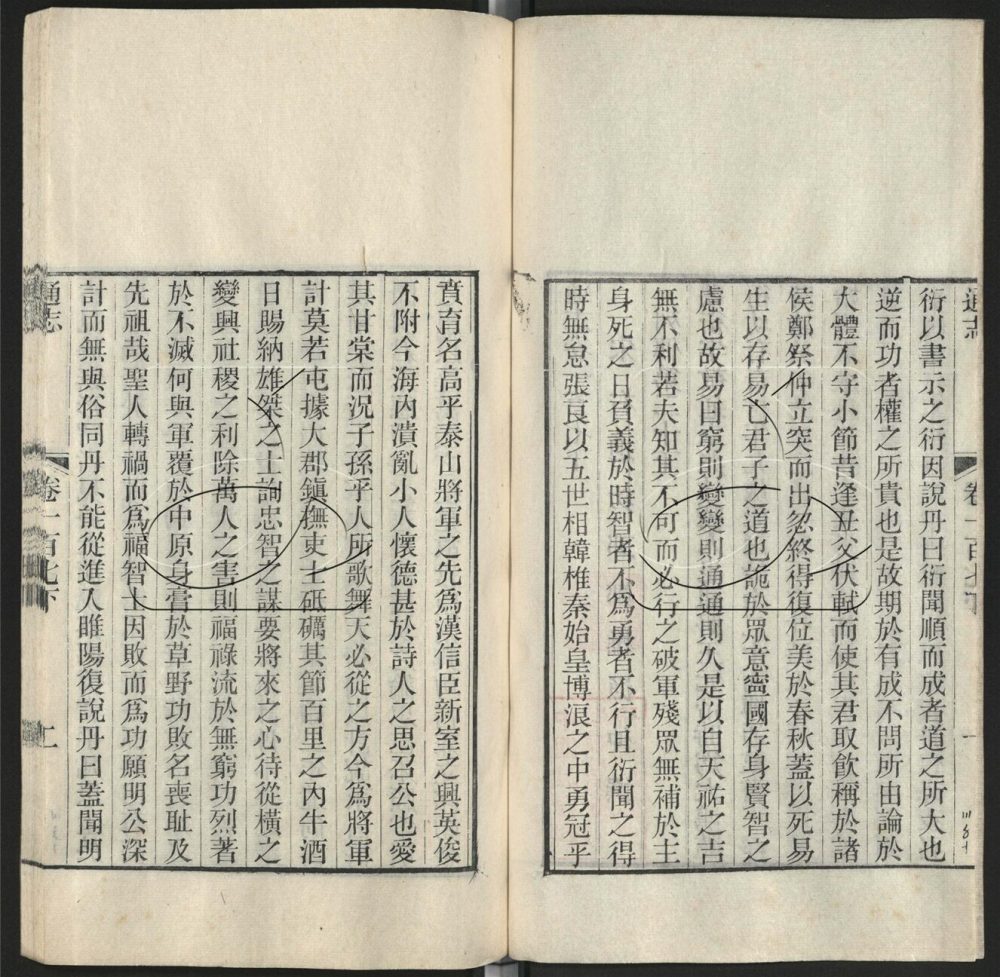 通志
卷一百七下
一
衍以書示之衍因說丹曰衍聞順而成者道之所大也
逆而功者權之所貴也是故期於有成不問所由論於
大體不守小節昔逢丑父伏軾而使其君取飲稱於諸
侯鄭祭仲立突而出忽終得復位美於春秋蓋以死易
生以存易亡君子之道也詭於眾意寧國存身賢智之
慮也故易曰窮則變變則通通則久是以自天祐之吉
無不利若夫知其不可而必行之破軍殘眾無補於主
身死之日負義於時智者不為勇者不行且衍聞之得
時無怠張良以五世相韓椎秦始皇博浪之中勇冠乎
賁育名高乎泰山將軍之先為漢信臣新室之興英俊
不附今海內潰亂小人懷德甚於詩人之思召公也愛
其甘棠而況子孫乎人所歌舞天必從之方今為將軍
計莫若屯據大郡鎮撫吏士砥礪其節百里之內牛酒
日賜納雄桀之士詢忠智之謀要將來之心待從橫之
變興社稷之利除萬人之害則福祿流於無窮功烈著
於不滅何與軍覆於中原身膏於草野功敗名喪恥及
先祖哉聖人轉禍而為福智士因敗而為功願明公深
計而無與俗同丹不能從進入睢陽復說丹曰蓋聞明
通志
卷一百七下